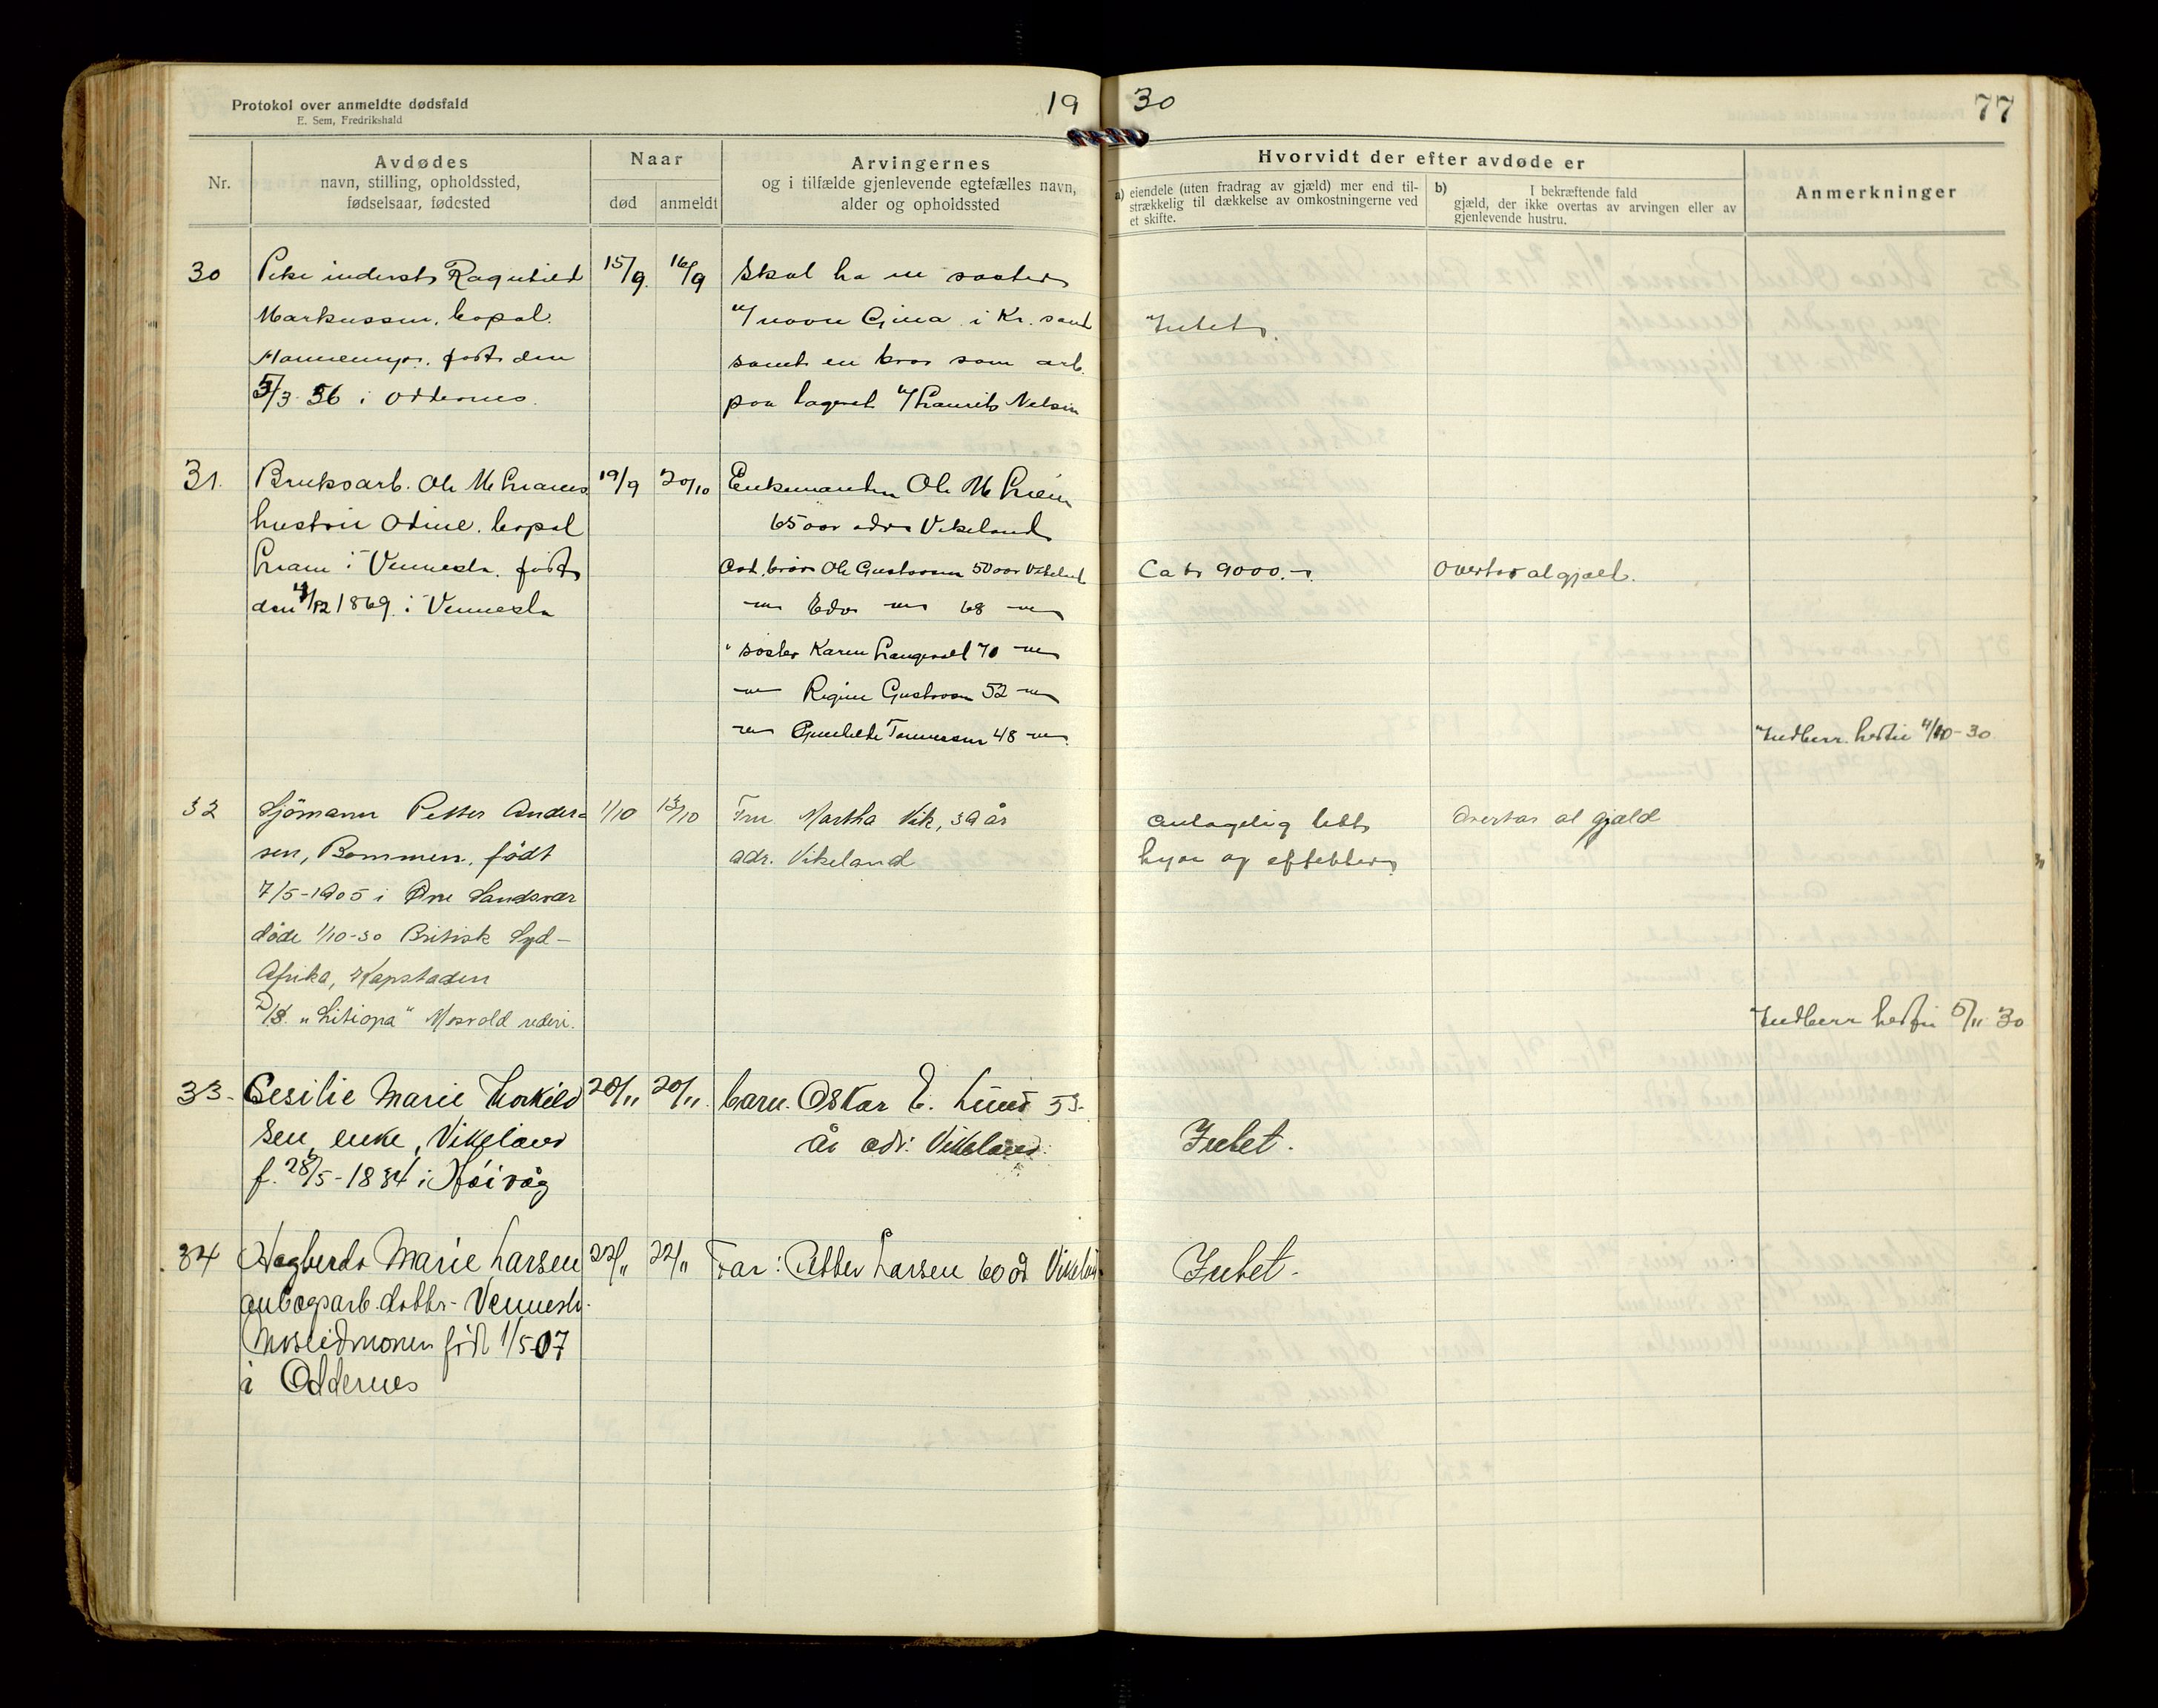 Protokol over anmeldte dødsfald
E. Sem, Fredrikshald
19 30
77
Nr.
Avdødes
navn, stilling, opholdssted,
fødselsaar, fødested
Naar
død
anmeldt
Arvingernes
og i tilfælde gjenlevende egtefælles navn,
alder og opholdssted
Hvorvidt der efter avdøde er
a) eiendele (uten fradrag av gjæld) mer end til-
strækkelig til dækkelse av omkostningerne ved
et skifte.
b) I bekræftende fald
gjæld, der ikke overtas av arvingen eller av
gjenlevende hustru.
Anmerkninger
30
Pike inderst Ragnhild
Markussen, bopal.
født den
5/3 56 i Oddernes.
15/9.
16/9
Skal ha en søster
v/ navn Gina i Kr. sand
samt en bror som arb.
paa lageret v/ Laurits Nelsen
Intet
31.
Bruksarb. Ole M
hustru Odine. bopal
i Vennesla. født
den /12 1869. i Vennesla
19/9
20/10
Enkemanden Ole M
65 aar adr. Vikeland
Avd. bror Ole Gustavsen 50 aar Vikeland
-"- Edv -"- 68 -"-
" søster Karen Langevoll 70 -"-
-"- Regine Gustavsen 52 -"-
-"- Gunhilde Tønnessen 48 -"-
Ca kr 9000.-
Overtar al gjæld.
Indberr. herfin 4/10-30
32
Sjömann Petter Ander-
sen, Bommen, födt
7/5-1905 i Øvre Sandsvær
döde 1/10-30 Britisk Syd-
Afrika, Kapstaden
D/S. "Litiopa" Mosvold rederi.
1/10
13/10
Fru Martha Vik, 39 år
adr. Vikeland
Antagelig litt
hyre og effekter
Overtar al gjæld
Indberr herfin 5/11 30
33-
Cesilie Marie Torkild
sen, enke, Vikeland
f. 28/5-1834 i Høivåg
20/11
20/11.
barn. Oskar E. Lund 53-
år adr: Vikeland.
Intet.
34
Dagberda Marie Larsen
anlægsarb. datter- Vennesla-
Moseidmonen född 1/5-07
i Oddernes
22/11
22/11
Far: Petter Larsen 60 år Vikeland
Intet.